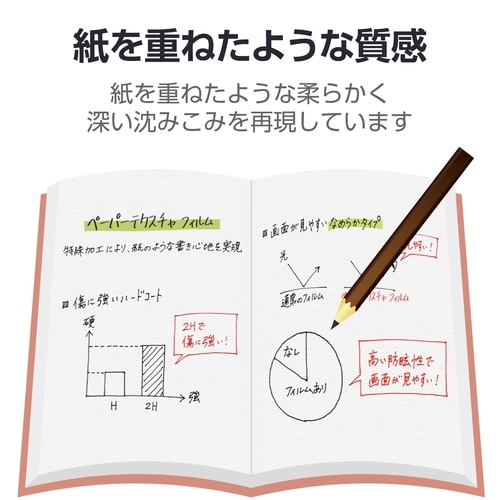 紙を重ねたような質感
紙を重ねたような柔らかく
深い沈みこみを再現しています
ペーパーテクスチャフィルム
特殊加工により、紙のような書き心地を実現
傷に強いハードコート
硬
2Hで
傷に強い!
H
2H
強
画面が見やすいなめらかタイプ
光
すい!
通常のフィルム
スチャフィルム
なし
フィルムあり
高い防眩性で
画面が見やすい!